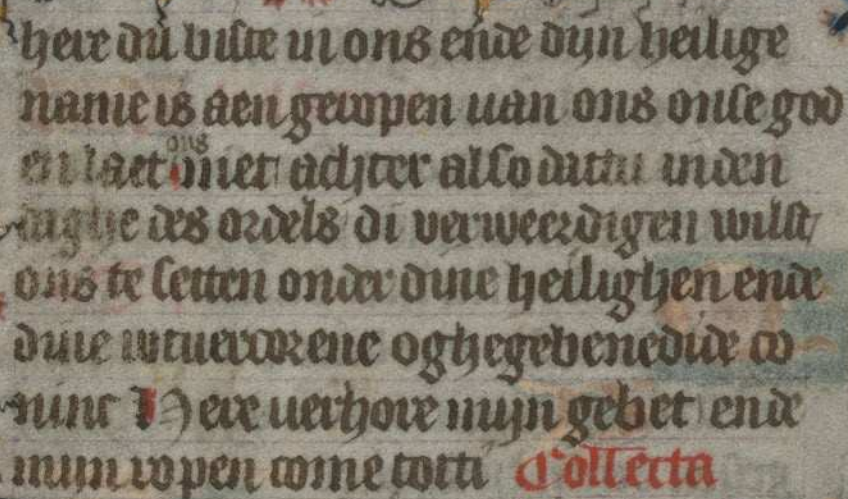 here du biste in ons ende dijn heilige
name is aen geropen uan ons onse god
en laet ons niet achter also dattu in den
daghe des ordels di verweerdigen wilst
ons te setten onder dine heilighen ende
dine wtuercorene o ghegebenedide co
ninc Here uerhore mijn gebet ende
mijn ropen come totti Collecta